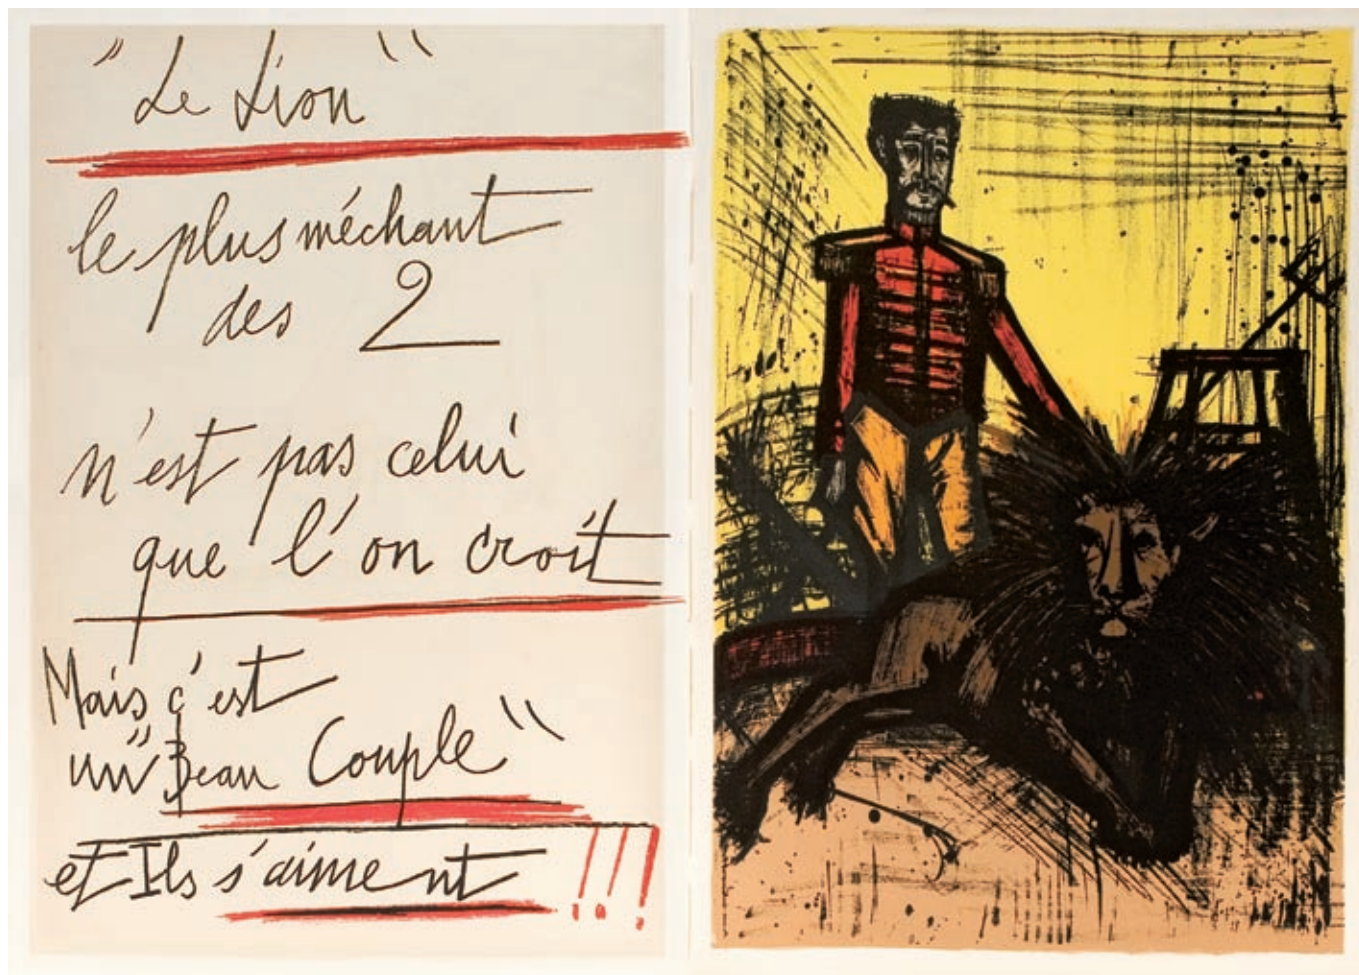 "Le Lion"
le plus méchant
des 2
n'est pas celui
que l'on croit
Mais c'est
un "Beau Couple"
et Ils s'aiment !!!